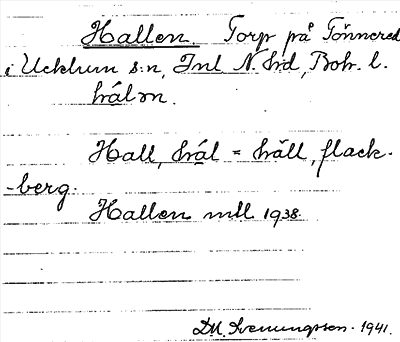 Hallen. Torp på Tönnered
i Ucklum s:n, Inl N. Hrd, Boh. l.
hál₃n.
Hall, hál = häll, flack-
-berg.
Hallen mtl 1938.
DM. Svenungsson. 1941.